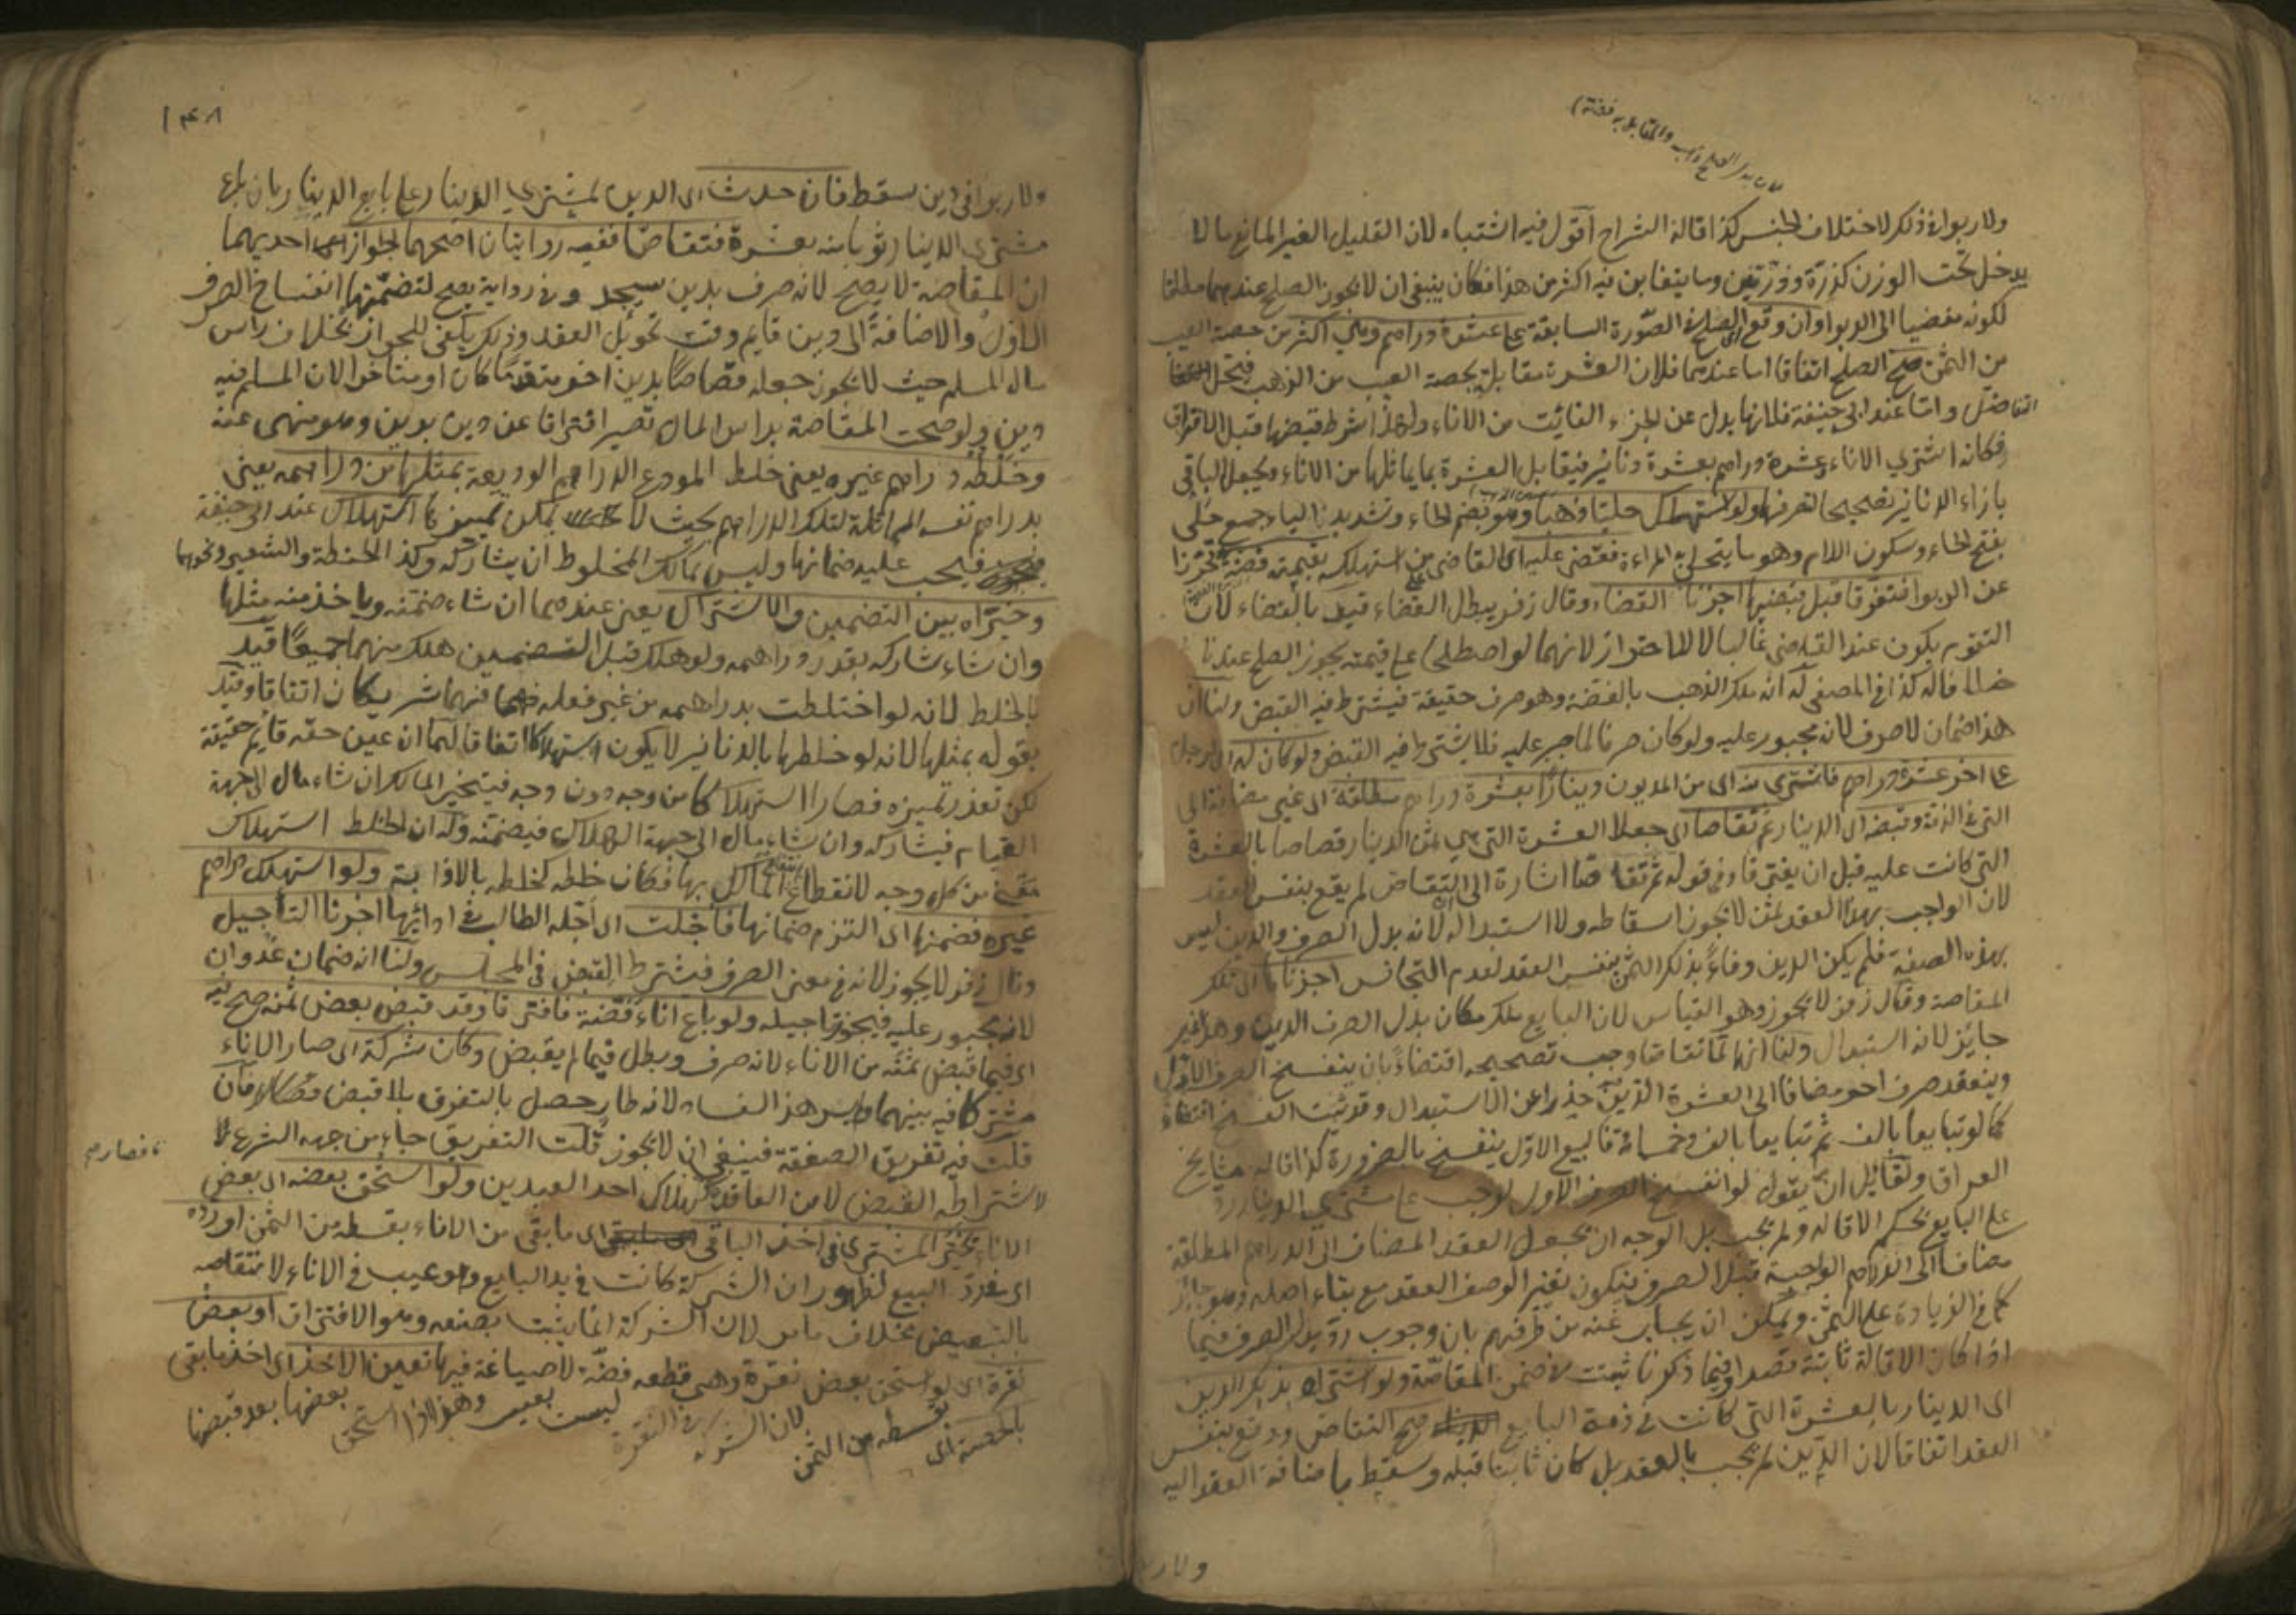 لان بدل الصلح ذهب والمقابل به فضة
ولا ربوا في ذلك لاختلاف الجنس كذا قاله الشراح اقول فيه اشتباه لان القليل الغير المانع ما لا
يدخل تحت الوزن كذرة وذرتين وما يتغابن فيه اكثر من هذا فكان ينبغي ان لا يجوز الصلح عندهما مطلقا
لكونه مفضيا الى الربوا وان وقع الصلح في الصورة السابقة على عشرة دراهم وهي اكثر من حصة العيب
من الثمن صح الصلح اتفاقا اما عندهما فلان العشرة مقابل بحصة العيب من الذهب فيحل
التفاضل واما عند ابي حنيفة فلانها بدل عن الجزء الفائت من الاناء ولهذا شرط قبضها قبل الافتراق
فكانه اشترى الاناء وعشرة دراهم بعشرة دنانير فيقابل العشرة بما يماثلها من الاناء ويجعل الباقي
بازاء الدنانير تصحيحا لتصرفهما ولو استهلك حليا ذهبا وهو بضم الحاء وتشديد الياء جمع حلي
بفتح الحاء وسكون اللام وهو ما يتحلى به المراءة فقضى عليه اى القاضي على من استهلكه بقيمته فضة تحرزا
عن الربوا فتفرقا قبل قبضها اجزنا القضاء وقال زفر يبطل القضاء قيد بالقضاء لان
التقويم يكون عند القاضي غالبا لا للاحتراز لانهما لو اصطلحا على قيمته يجوز الصلح عندنا
خلافا له كذا في المصفى له انه ملك الذهب بالفضة وهو صرف حقيقة فيشترط فيه القبض ولنا ان
هذا ضمان لا صرف لانه مجبور عليه ولو كان صرفا لما جبر عليه فلا يشترط فيه القبض ولو كان له اى لرجل
على اخر عشرة دراهم فاشترى منه اى من المديون دينارا بعشرة دراهم مطلقة اى غير مضافة الى
التي في الذمة وقبضه اى الدينار ثم تقاصا اى جعلا العشرة التي هي ثمن الدينار قصاصا بالعشرة
التي كانت عليه قبل ان يفترقا وفي قوله ثم تقاصا اشارة الى ان التقاص لم يقع بنفس العقد
لان الواجب بهذا العقد ثمن لا يجوز اسقاطه ولا استبداله لانه بدل الصرف والدين ليس
بهذه الصفة فلم يكن الدين وفاءً بذلك الثمن بنفس العقد لعدم التجانس اجزناها اى تلك
المقاصة وقال زفر لا يجوز وهو القياس لان البايع ملك مكان بدل الصرف الدين وهو غير
جايز لانه استبدال ولنا انهما لما تقاصا وجب تصحيحه اقتضاءً بان ينفسخ الصرف الاول
وينعقد صرف اخر مضافا الى العشرة الدين حذرا عن الاستبدال وقد ثبت الفسخ اقتضاء
كما لو تبايعا بالف ثم تبايعا بالف وخمسمائة فالبيع الاول ينفسخ بالضرورة كذا قاله مشايخ
العراق ولقائل ان يقول لو انفسخ الصرف الاول لوجب على مشتري الدينار رده
على البايع بحكم الاقالة ولم يجب بل الوجه ان يجعل العقد المضاف الى الدراهم المطلقة
مضافا الى الدراهم الواجبة قبل الصرف فيكون تغير الوصف العقد مع بقاء اصله وهو جائز
كما في الزيادة على الثمن ويمكن ان يجاب عنه من طرفهم بان وجوب رد بدل الصرف فيما
اذا كان الاقالة ثابتة قصدا وفيما ذكرنا ثبتت في ضمن المقاصة ولو اشتراه بذلك الدين
اى الدينار بالعشرة التي كانت في ذمة البايع صح التقاص ووقع بنفس
العقد اتفاقا لان الدين لم يجب بالعقد بل كان ثابتا قبله وسقط باضافة العقد اليه
ولا ر
١٤٨
ولا ربوا في دين سقط فان حدث اى الدين لمشتري الدينار على بايع الدينار بان باع
مشتري الدينار ثوبا منه بعشرة فتقاصا ففيه روايتان اصحهما الجواز احديهما
ان المقاصة لا يصح لانه صرف بدين سيجد وفي رواية يصح لتضمنها انفساخ الصرف
الاول والاضافة الى دين قايم وقت تحويل العقد وذلك يكفي للجواز بخلاف راس
مال السلم حيث لا يجوز جعله قصاصا بدين اخر متقدما كان او متاخرا لان المسلم فيه
دين ولو صحت المقاصة براس المال تصير افتراقا عن دين بدين وهو منهي عنه
وخلطه دراهم غيره يعني خلط المودع الدراهم الوديعة بمثلها من دراهمه يعني
بدراهم نفسه المماثلة لتلك الدراهم بحيث لا يمكن تمييزها استهلاك عند ابي حنيفة
فيجب عليه ضمانها وليس لمالك المخلوط ان يشاركه وكذا الحنطة والشعير ونحوهما
وخيراه بين التضمين والاشتراك يعني عندهما ان شاء ضمنه وياخذ منه مثلها
وان شاء شاركه بقدر دراهمه ولو هلك قبل التضمين هلك منهما جميعا قيد
بالخلط لانه لو اختلطت بدراهمه من غير فعله فهما شريكان اتفاقا وقيد
بقوله بمثلها لانه لو خلطها بالدنانير لا يكون استهلاكا اتفاقا لهما ان عين حقه قايم حقيقة
لكن تعذر تميزه فصار استهلاكا من وجه دون وجه فيتخير المالك ان شاء مال الى جهة
القيام فيشاركه وان شاء مال الى جهة الهلاك فيضمنه وله ان الخلط استهلاك
معنى من كل وجه لانقطاع انتفاع المالك بها فكان خلطه كخلطه بالاذابة ولو استهلك دراهم
غيره فضمنها اى التزم ضمانها فاجلت اى اجله الطالب في ادائها اجزنا التأجيل
وقال زفر لا يجوز لانه في معنى الصرف فيشترط القبض في المجلس ولنا انه ضمان عدوان
لانه مجبور عليه فيجوز تاجيله ولو باع اناء فضة فافترقا وقد قبض بعض ثمنه صح فيه
اى فيما قبض ثمنه من الاناء لانه صرف وبطل فيما لم يقبض وكان شركة اى صار الاناء
مشتركا فيه بينهما وليس هذا الفساد لانه طار حصل بالتفرق بلا قبض فان
قلت فيه تفريق الصفقة فينبغي ان لا يجوز قلت التفريق جاء من جهة الشرع
فصار
لاشتراطه القبض لا من العاقد كهلاك احد العبدين ولو استحق بعضه اى بعض
الاناء يخير المشتري في اخذ الباقي اى ما بقى من الاناء بقسطه من الثمن او رده
اى يفرد البيع لظهور ان الشركة كانت في يد البايع وهو عيب في الاناء لانتقاصه
بالتبعيض بخلاف ما مر لان الشركة انما يثبت بصنعه وهو الافتراق او بعض
نقرة اى لو استحق بعض نقرة وهي قطعه فضة لا صياغة فيها تعين الاخذ اى اخذ ما بقى
بالحصة اى بقسطه من الثمن لان الشركة في النقرة ليست بعيب وهذا اذا استحق بعضها بعد قبضها